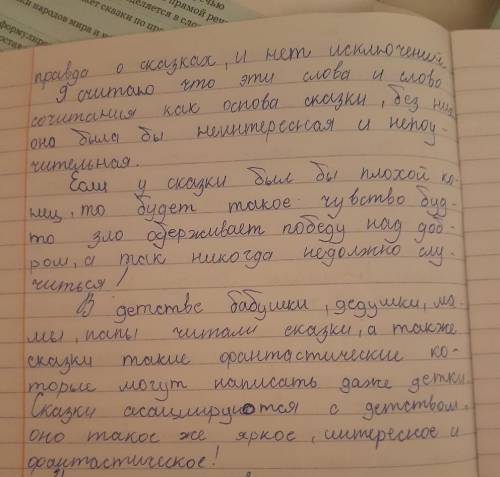 речью
прямой реч
деляется в сло
жет сказки по пр
ки народов мира и
формулиру
правда о сказках, и нет исключений.
Я считаю что эти слова и слово
сочитания как основа сказки, без них
оно была бы неинтересная и непоу-
чительная.
Если у сказки был бы плохой ко-
нец, то будет такое чувство буд-
то зло одерживает победу над доб-
ром, а так никогда недолжно слу-
читься!
В детстве бабушки, дедушки, ма-
мы, папы читали сказки, а также
сказки такие фантастические ко-
торые могут написать даже детки.
Сказки асацыируются с детством,
оно такое же яркое, интересное и
фантастическое!